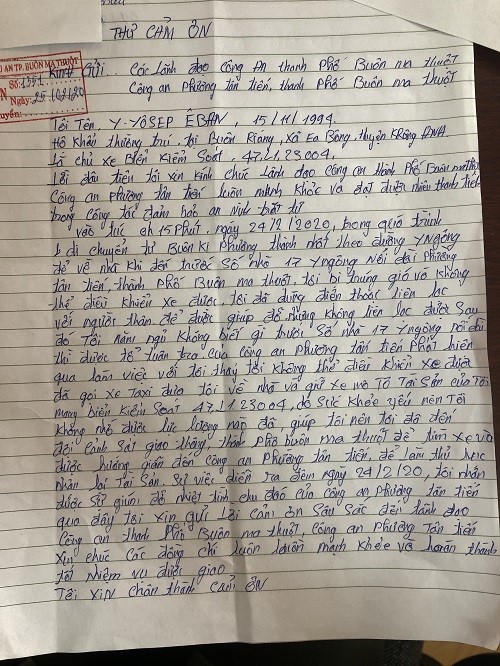 THƯ CẢM ƠN
AN TP. BUÔN MA THUỘT
Số: 1551
Ngày: 25/02/20
Kính Gửi: Các Lãnh đạo Công An thành Phố Buôn ma thuột
Công an phường tân tiến, thành Phố Buôn ma thuột
Tôi Tên, Y-YÔSEP ÊBAN, 15/11/1994
Hộ khẩu thường trú, tại Buôn Riang, xã Ea Bông, huyện Krông ANA
Là chủ xe Biển Kiểm Soát, 47.L1.23004,
Lời đầu tiên tôi xin Kính chúc Lãnh đạo công an thành Phố Buôn ma thuột
Công an phường tân tiến luôn mạnh khỏe và đạt được nhiều thành tích
trong công tác đảm bảo an ninh trật tự
vào lúc 15 Phút, ngày 24/2/2020, trong quá trình
di chuyển từ Buôn Ki Phường thành nhất theo đường Y Ngông
để về nhà khi đến trước số nhà 17 Y Ngông Nối dài Phường
tân tiến, thành Phố Buôn ma thuột, tôi bị trúng gió và không
thể điều khiển xe được, tôi đã dùng điện thoại liên lạc
với người thân để được giúp đỡ nhưng không liên lạc được sau
đó Tôi nằm ngủ không biết gì trước số nhà 17 Y ngông nối dài
thì được tổ tuần tra của công an phường tân tiến phát hiện
qua làm việc với tôi thấy tôi không thể điều khiển xe được
đã gọi xe Taxi đưa tôi về nhà và giữ xe mô Tô Tài Sản của Tôi
mang biển kiểm soát 47.L1 23004, do sức khỏe yếu nên Tôi
không nhớ được lực lượng nào đã giúp tôi nên tôi đã đến
đội Cảnh Sát giao thông thành phố buôn ma thuột để tìm xe và
được hướng dẫn đến công an phường tân tiến, để làm thủ tục
nhận lại Tài Sản. Sự việc diễn ra đêm ngày 24/2/20, tôi nhận
được sự giúp đỡ nhiệt tình chu đáo của công an phường tân tiến
qua đây tôi xin gửi lời cảm ơn sâu sắc đến lãnh đạo
công an thành Phố Buôn ma thuột, công an phường Tân tiến
xin chúc các đồng chí luôn luôn mạnh khỏe và hoàn thành
tốt nhiệm vụ được giao
Tôi XIN chân thành CẢM ƠN